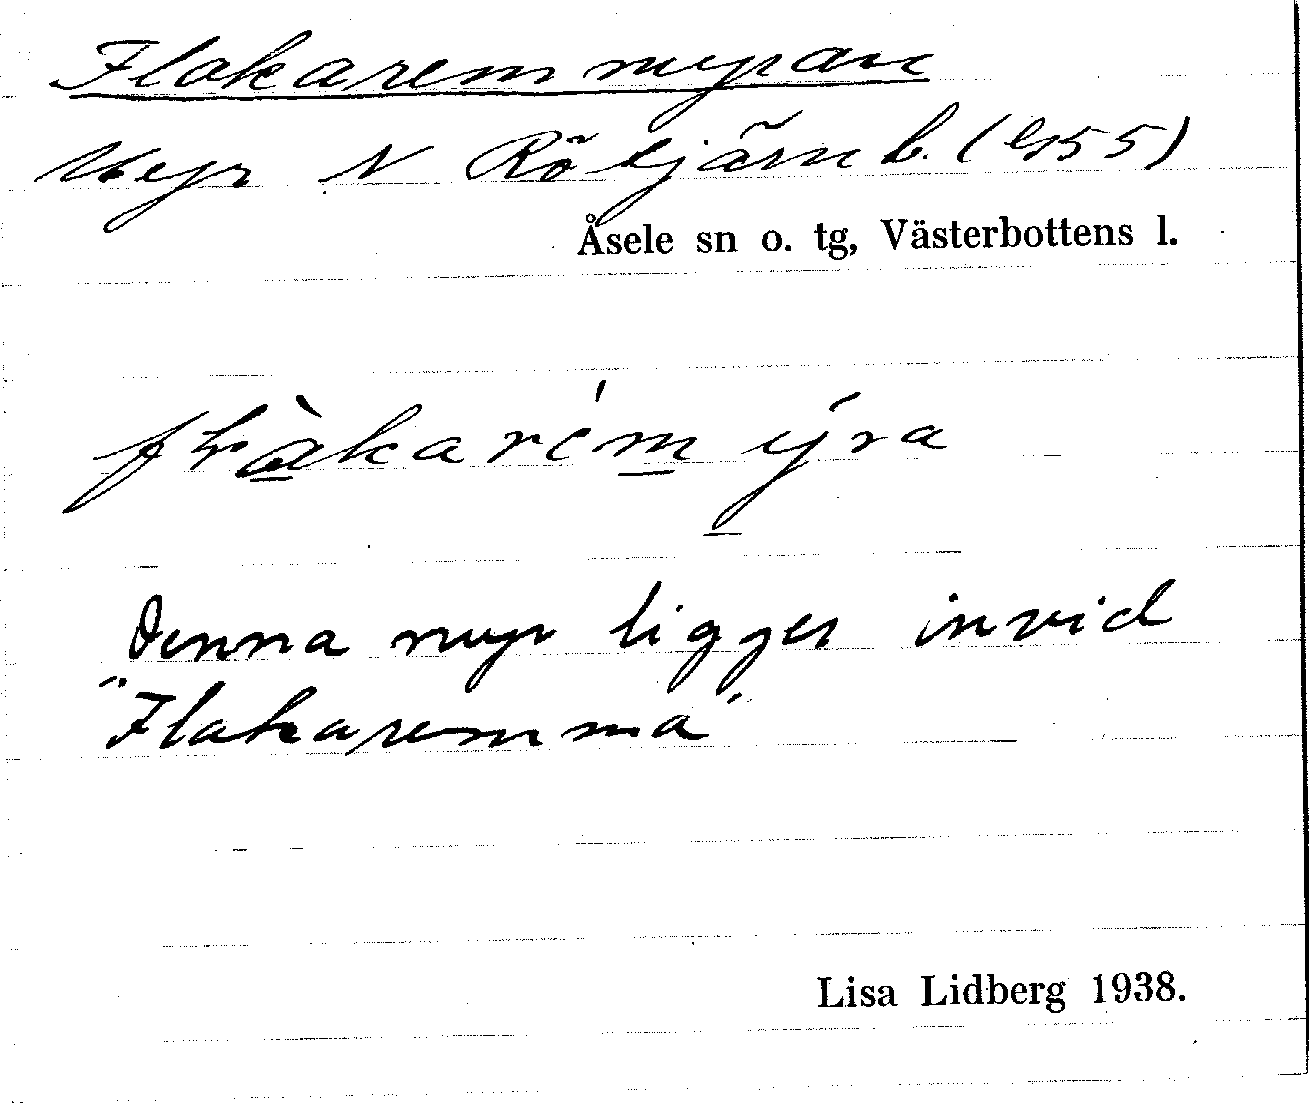 Flakaremmyran
Myr N Rötjärn b. (G55)
Åsele sn o. tg, Västerbottens l.
Denna myr ligger invid
"Flakaremma"
Lisa Lidberg 1938.